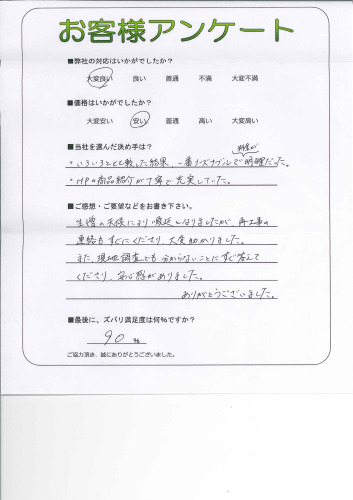 お客様アンケート
■弊社の対応はいかがでしたか?
大変良い 良い 普通 不満 大変不満
■価格はいかがでしたか?
大変安い 安い 普通 高い 大変高い
■当社を選んだ決め手は?
料金が
・いろいろと比較した結果、一番リーズナブルで明確だった。
・HPの商品紹介が丁寧で充実していた。
■ご感想・ご要望などをお書き下さい。
生憎の天候により順延しなりましたが、再工事の
連絡もすぐにくださり、大変助かりました。
また、現地調査でも分からないことにすぐ答えて
くださり、安心感がありました。
ありがとうございました。
■最後に、ズバリ満足度は何%ですか?
90 %
ご協力頂き、誠にありがとうございました。